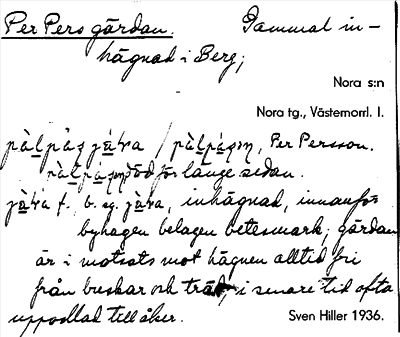 Per Pers gärdan. Gammal in-
hägnad i Berg;
Nora s:n
Nora tg., Västernorrl. l.
pàlpàs̩ jà́ɽa / pàlpàs̩n̩, Per Persson.
pàlpàs̩n̩ död för länge sedan.
jàɽa f. b. sg. jàɽa, inhägnad, innanför
byhagen belägen betesmark; gärdan
är i motsats mot hägnen alltid fri
från buskar och träd, i senare tid ofta
uppodlad till åker. Sven Hiller 1936.